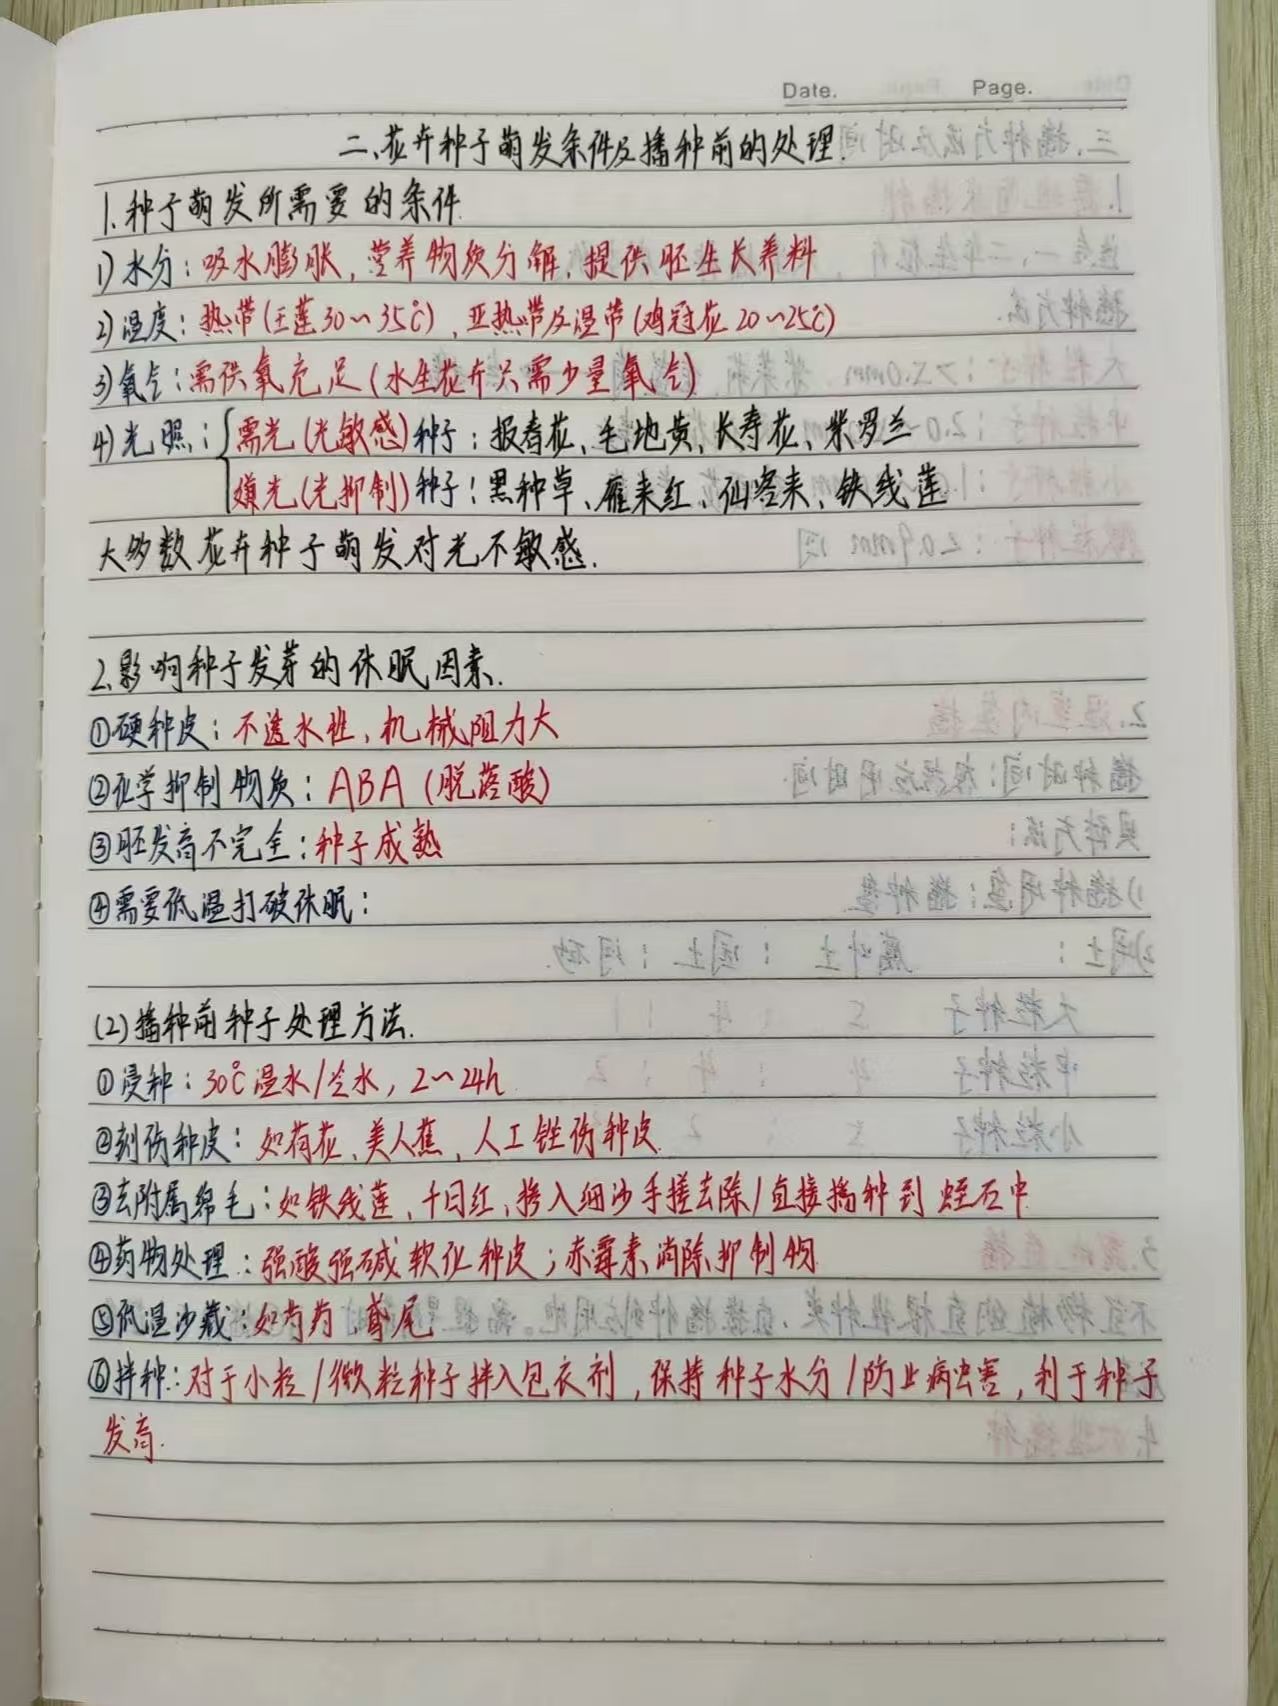 Date. Page.
二、花卉种子萌发条件及播种前的处理.
1.种子萌发所需要的条件
1)水分:吸水膨胀,营养物质分解,提供胚生长养料
2)温度:热带(王莲30~35℃),亚热带及温带(鸡冠花20~25℃)
3)氧气:需供氧充足(水生花卉只需少量氧气)
4)光照:{需光(光敏感)种子:报春花、毛地黄、长寿花、紫罗兰
嫌光(光抑制)种子:黑种草、雁来红、仙客来、铁线莲
大多数花卉种子萌发对光不敏感.
2.影响种子发芽的休眠因素.
①硬种皮:不透水性,机械阻力大
②化学抑制物质:ABA(脱落酸)
③胚发育不完全:种子成熟
④需要低温打破休眠:
(2)播种前种子处理方法.
①浸种:30℃温水/冷水,2~24h
②刻伤种皮:如荷花、美人蕉,人工锉伤种皮
③去附属绵毛:如铁线莲,千日红,掺入细沙手搓去除/直接播种到蛭石中
④药物处理:强酸强碱软化种皮;赤霉素消除抑制物
⑤低温沙藏:如芍药,鸢尾
⑥拌种:对于小粒/微粒种子拌入包衣剂,保持种子水分/防止病虫害,利于种子
发育.